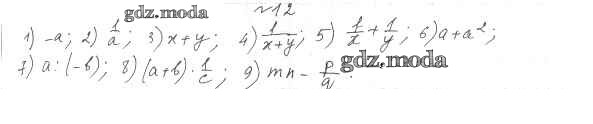 gdz.moda
№12
1) -a; 2) 1/a; 3) x+y; 4) 1/(x+y); 5) 1/x + 1/y; 6) a+a²;
7) a:(-b); 8) (a+b)·1/c; 9) mn - p/q.
gdz.moda